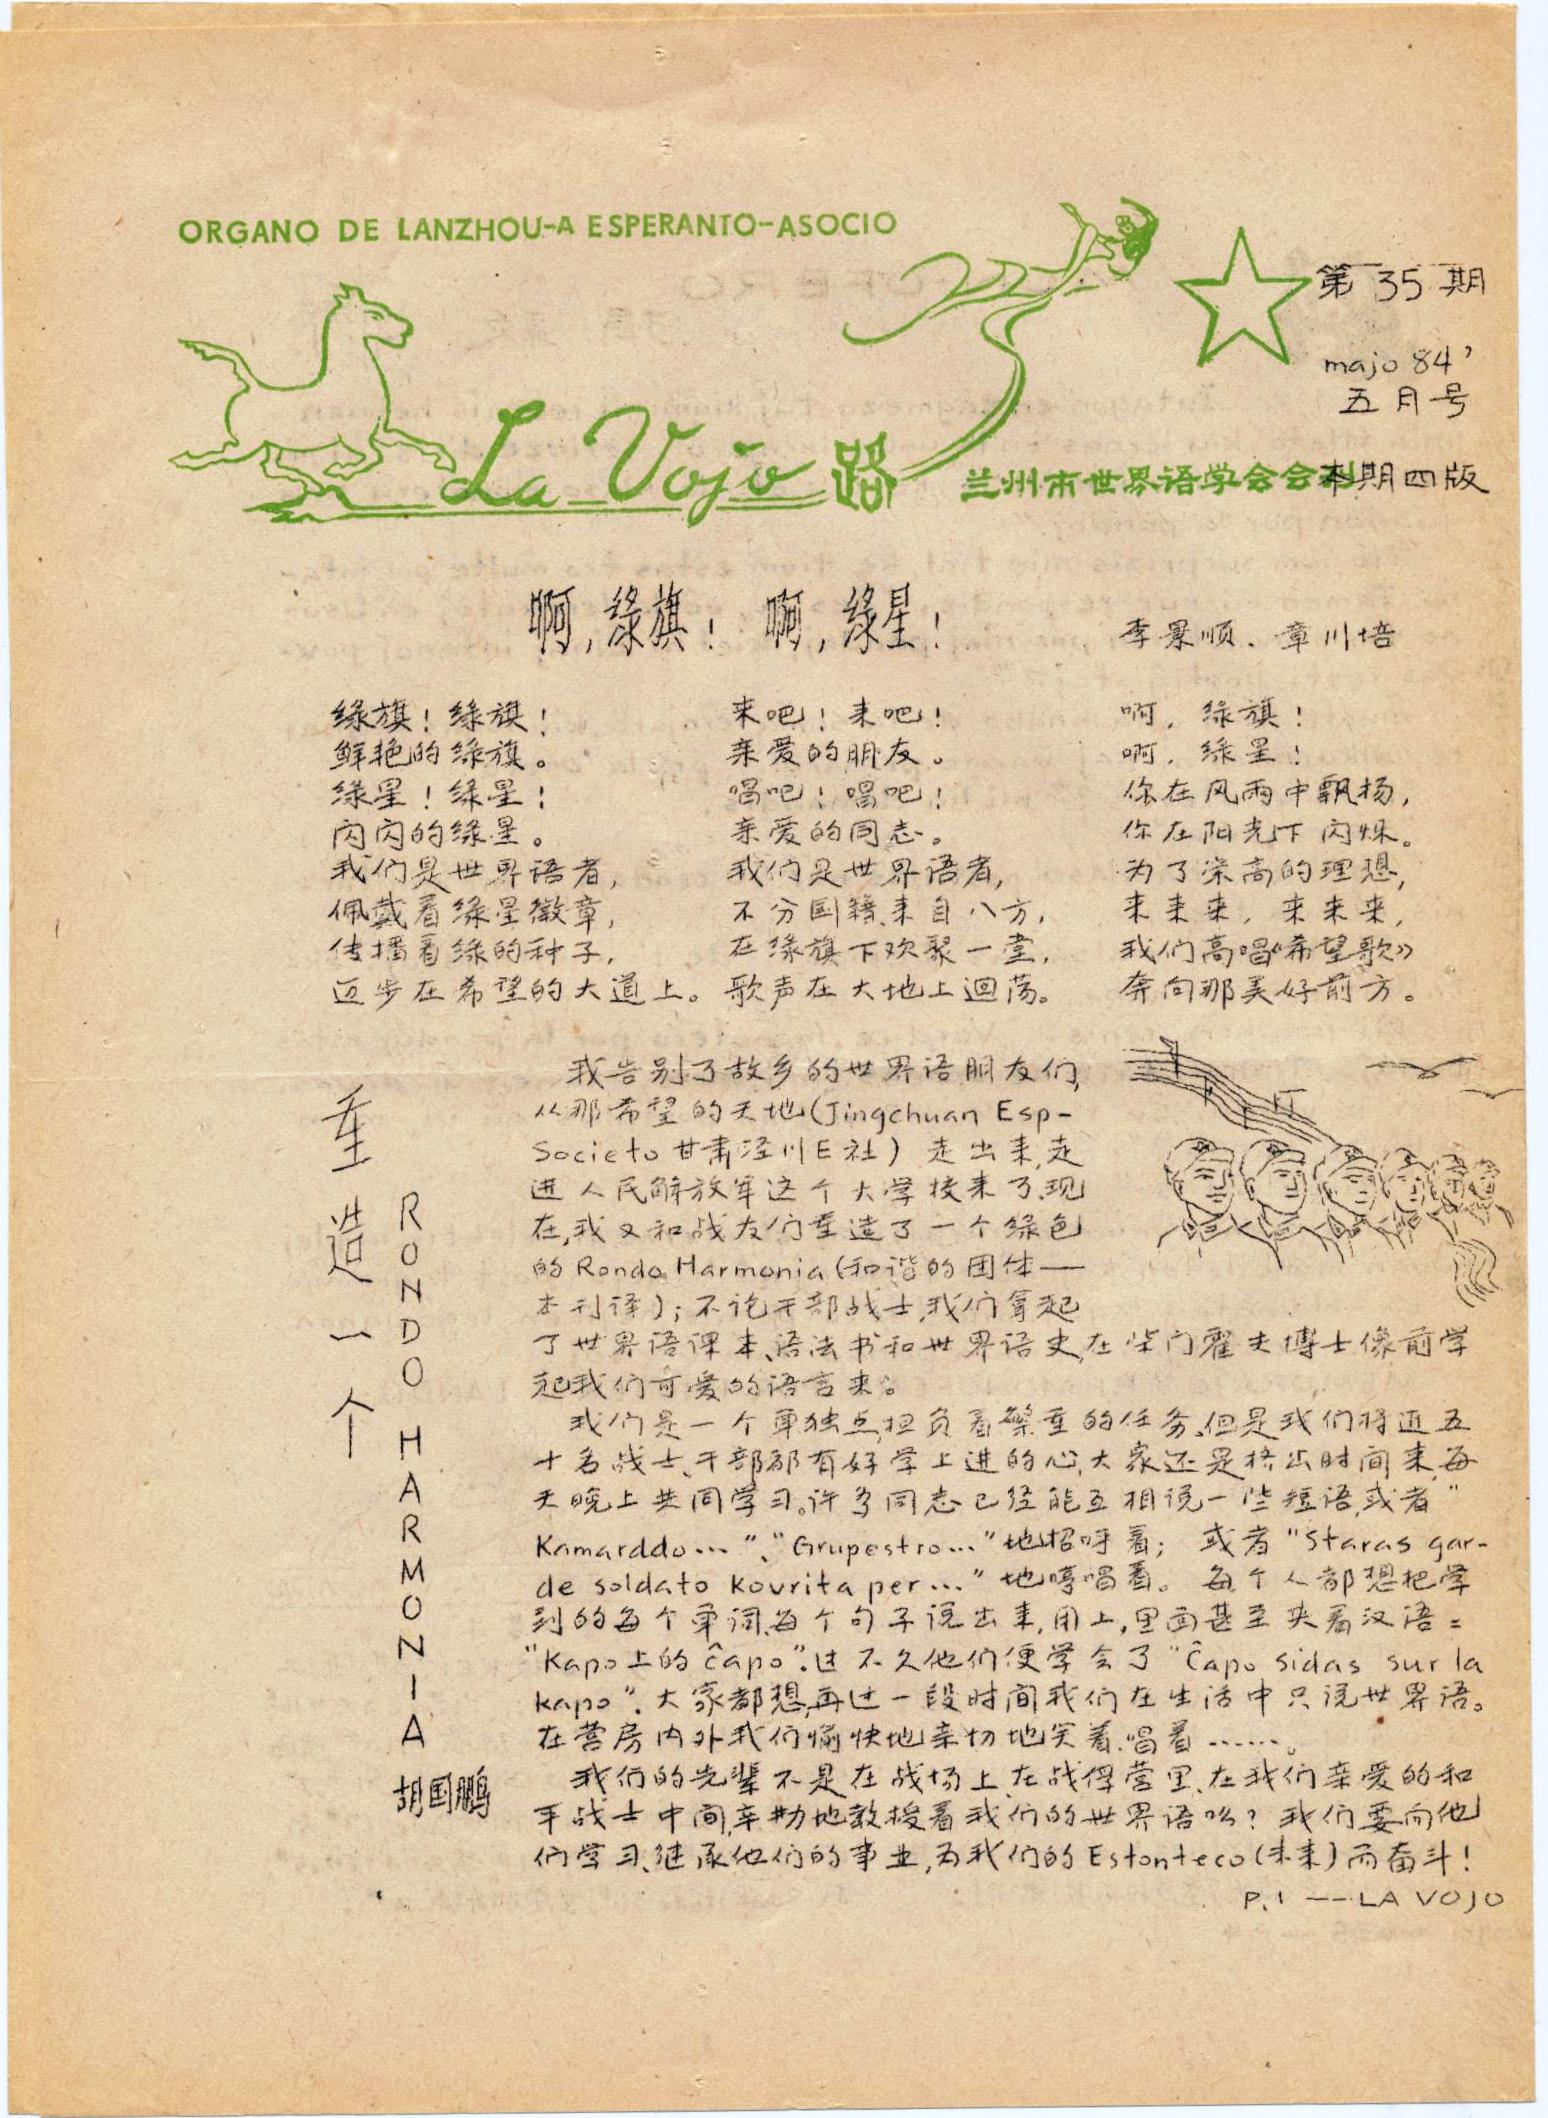 ORGANO DE LANZHOU-A ESPERANTO-ASOCIO
第35期
majo 84'
五月号
La Vojo 路
兰州市世界语学会会刊
本期四版
啊,绿旗! 啊,绿星!
李景顺、章川培
绿旗!绿旗!
鲜艳的绿旗。
绿星!绿星!
闪闪的绿星。
我们是世界语者,
佩戴着绿星徽章,
传播着绿的种子,
迈步在希望的大道上。
来吧!来吧!
亲爱的朋友。
唱吧!唱吧!
亲爱的同志。
我们是世界语者,
不分国籍、来自八方,
在绿旗下欢聚一堂,
歌声在大地上迴荡。
啊,绿旗!
啊,绿星!
你在风雨中飘扬,
你在阳光下闪烁。
为了崇高的理想,
来来来,来来来,
我们高唱《希望歌》
奔向那美好前方。
重造一个
RONDO HARMONIA
胡国鹏
我告别了故乡的世界语朋友们,
从那希望的天地(Jingchuan Esp-
Societo 甘肃泾川E社)走出来,走
进人民解放军这个大学校来了,现
在,我又和战友们重造了一个绿色
的Rondo Harmonia(和谐的团体—
本刊译);不论干部战士,我们拿起
了世界语课本、语法书和世界语史,在柴门霍夫博士像前学
起我们可爱的语言来。
我们是一个单独点,担负着繁重的任务,但是我们将近五
十名战士、干部都有好学上进的心,大家还是挤出时间来,每
天晚上共同学习。许多同志已经能互相说一些短语,或者"
Kamarddo…"、"Grupestro…"地招呼着; 或者"Staras gar-
de soldato Kovrita per…"地哼唱着。每个人都想把学
到的每个单词、每个句子说出来,用上,里面甚至夹着汉语:
"Kapo上的ĉapo".过不久他们便学会了"Ĉapo sidas sur la
kapo".大家都想,再过一段时间我们在生活中只说世界语。
在营房内外我们愉快地亲切地笑着、唱着……。
我们的先辈不是在战场上、在战俘营里、在我们亲爱的和
平战士中间,辛勤地教授着我们的世界语吗?我们要向他
们学习、继承他们的事业,为我们的Estonteco(未来)而奋斗!
P.1 ——LA VOJO